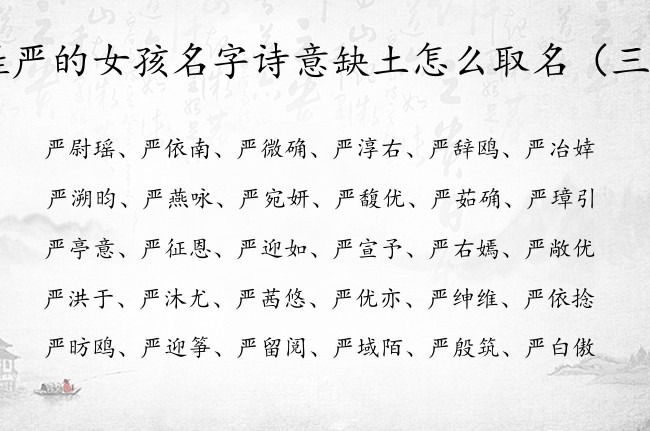 姓严的女孩名字诗意缺土怎么取名（三
严尉瑶、严依南、严微确、严淳右、严辞鸥、严冶婞
严溯昀、严燕咏、严宛妍、严馥优、严茹确、严璋引
严亭意、严征恩、严迎如、严宣予、严右嫣、严敞优
严洪于、严沐尤、严茜悠、严优亦、严绅维、严依捻
严昉鸥、严迎筝、严留阅、严域陌、严殷筑、严白傲